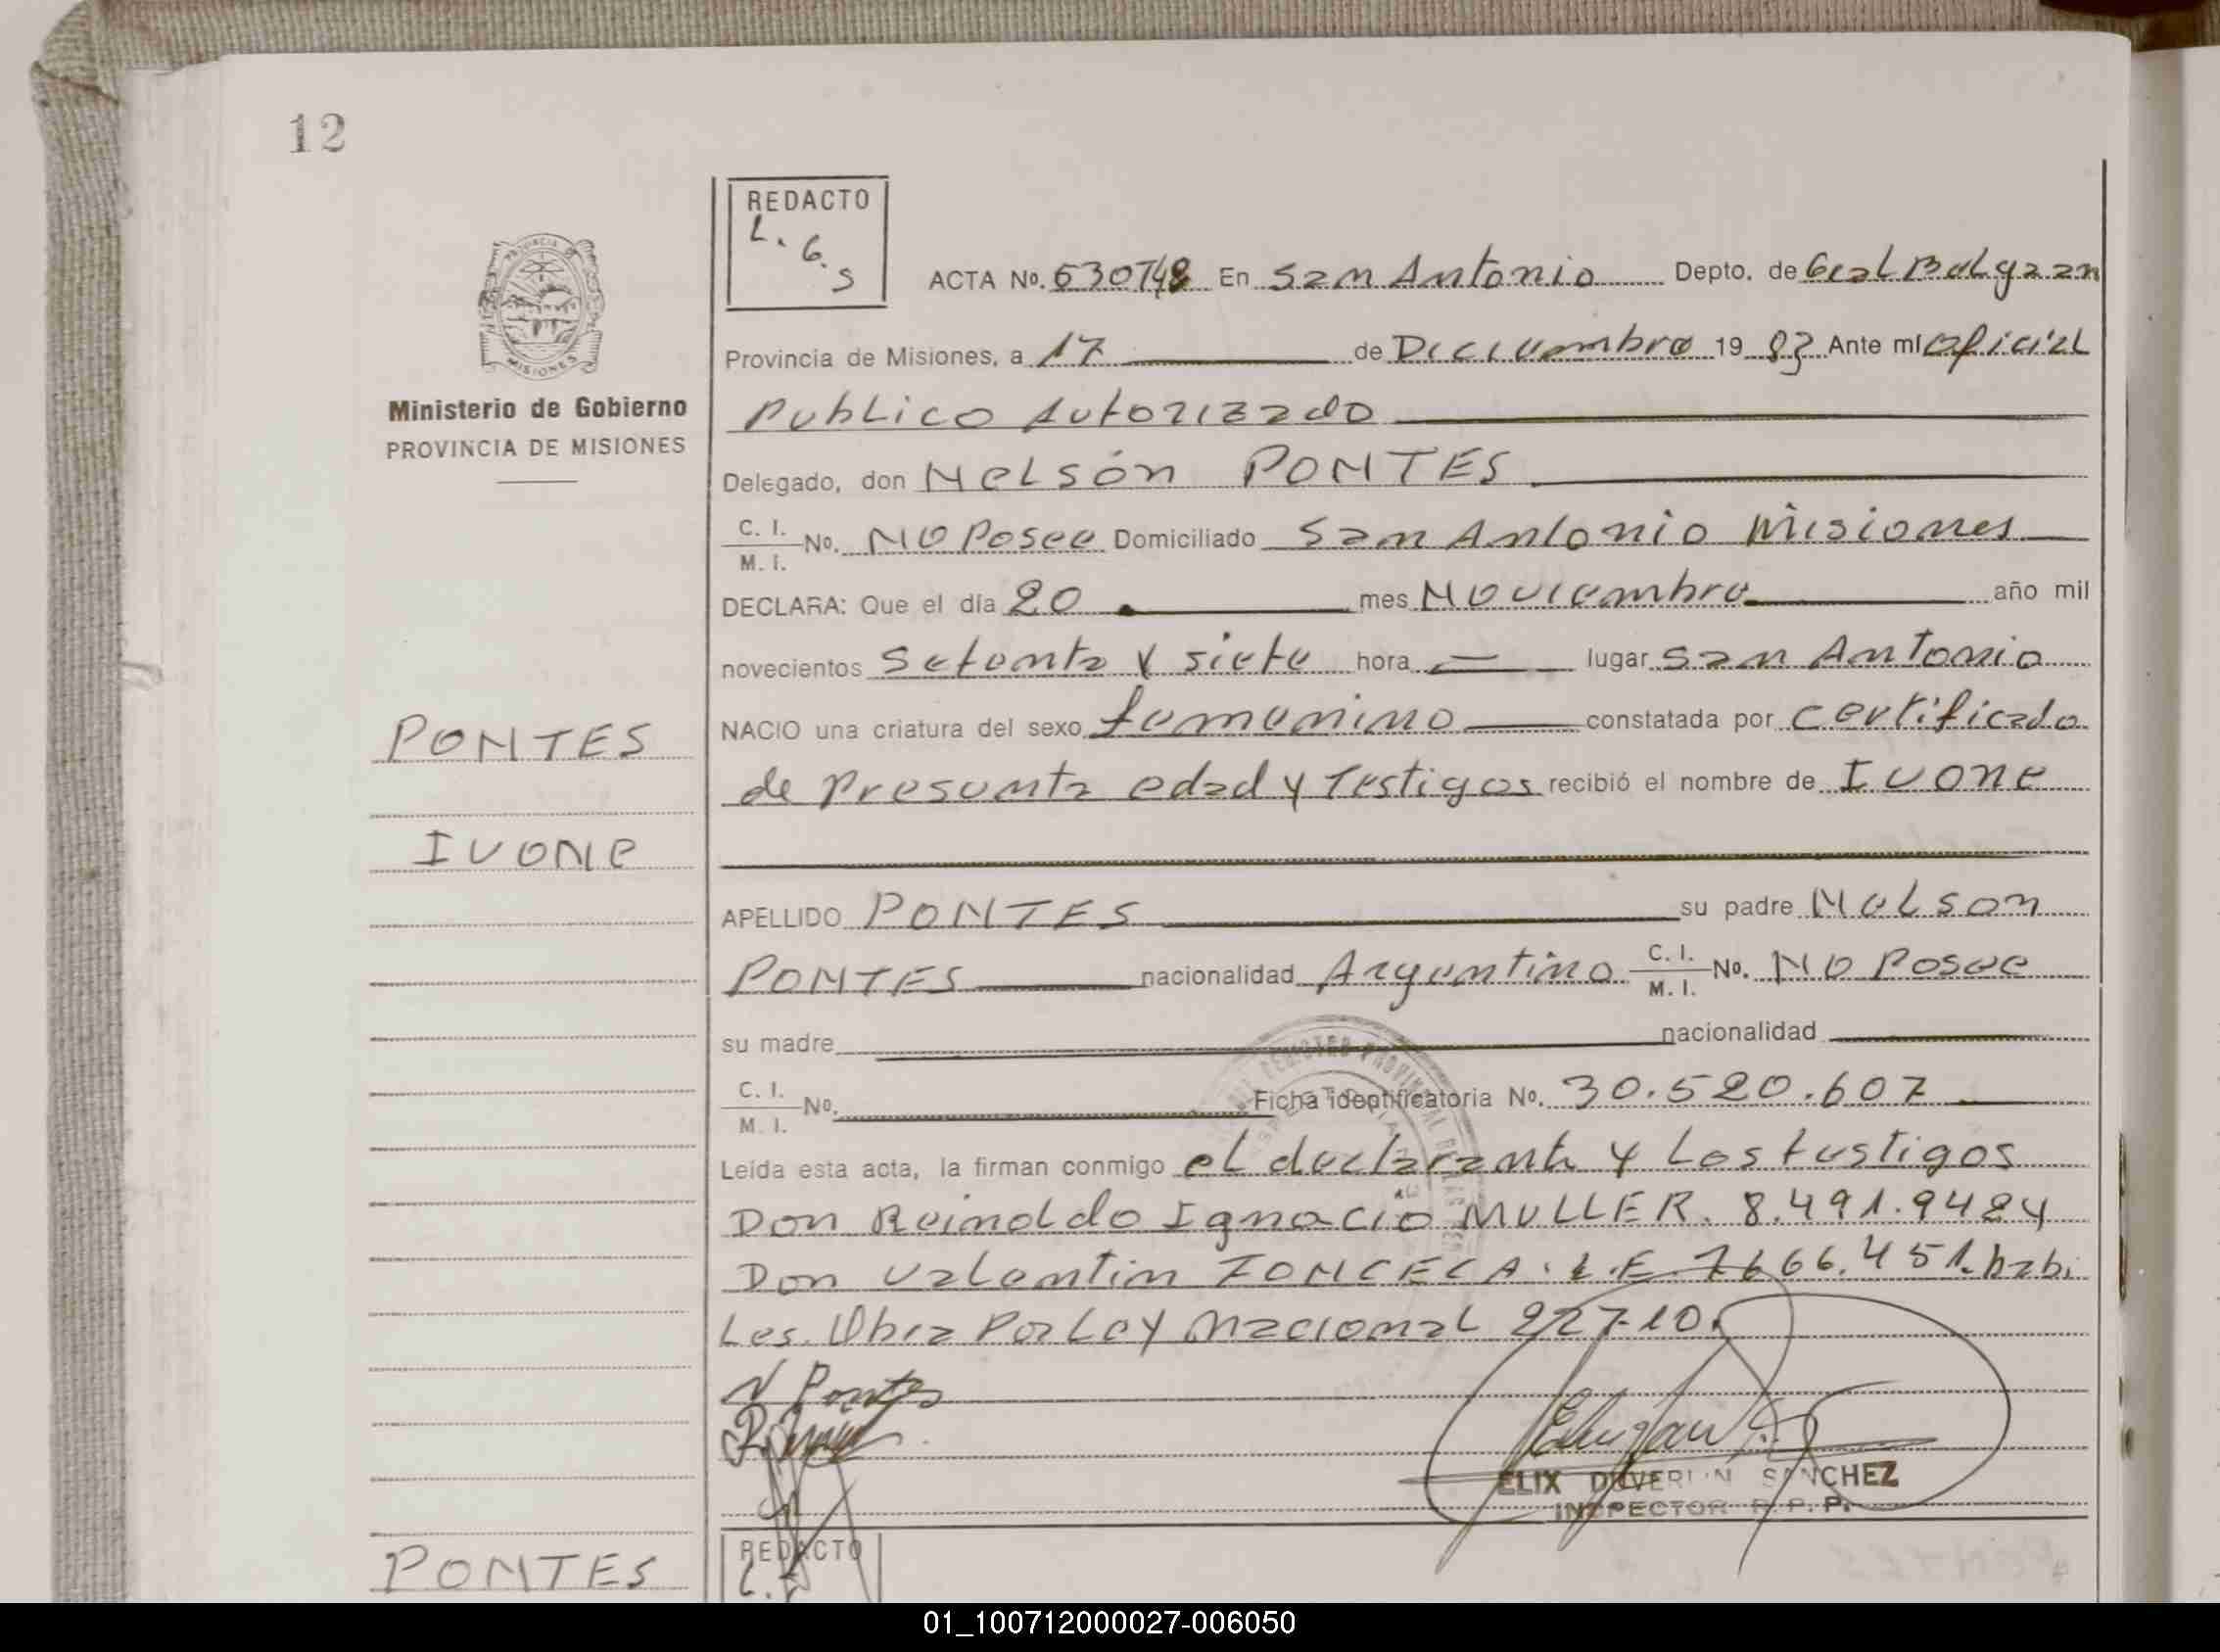 12
REDACTO
L. G. S
ACTA No. 630748 En San Antonio Depto. de Gral Belgran
Ministerio de Gobierno
PROVINCIA DE MISIONES
Provincia de Misiones, a 17 de Diciembre 1983 Ante mí oficial
Publico Autorizado
Delegado, don Nelsón PONTES
C. I.
M. I. No. No Posee Domiciliado San Antonio Misiones
DECLARA: Que el día 20 mes Noviembre año mil
novecientos Setenta y siete hora lugar San Antonio
NACIO una criatura del sexo femenino constatada por certificado
de Presunta edad y Testigos recibió el nombre de Ivone
PONTES
IVONe
APELLIDO PONTES su padre Nelson
PONTES nacionalidad Argentino C. I. M. I. No. No Posee
su madre nacionalidad
C. I.
M. I. No. Ficha identificatoria No. 30.520.607
Leída esta acta, la firman conmigo el declarante y Los testigos
Don Reinoldo Ignacio MULLER. 8.491.9424
Don Valentin FONCECA. L.E. 7666.451. habi
Les. Obra Por Ley Nacional 22710.
N Pontes
SANCHEZ
INSPECTOR R. P. P.
REDACTO
L.
PONTES
01_100712000027-006050